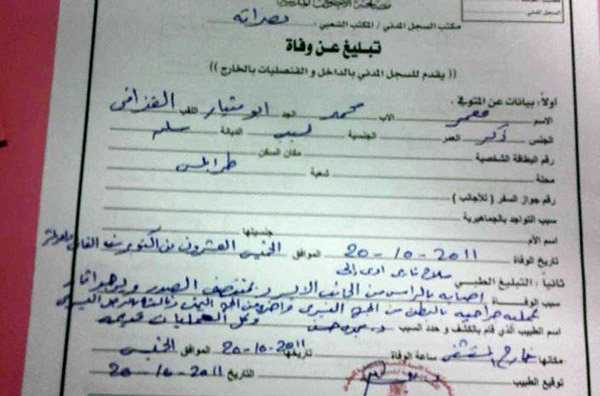 مصلحة الأحوال المدنية
مكتب السجل المدني / المكتب الشعبي : مصراته
السجل المدني
تبليغ عن وفاة
(( يقدم للسجل المدني بالداخل و القنصليات بالخارج ))
أولاً : بيانات عن المتوفى :
الاسم معمر الاب محمد الجد ابومنيار اللقب القذافي
الجنس ذكر العمر الجنسية ليبي الديانة مسلم
رقم البطاقة الشخصية مكان السكن
محلة شعبية طرابلس
رقم جواز السفر ( للأجانب )
سبب التواجد بالجماهيرية
اسم الأم جنسيتها
تاريخ الوفاة 20-10-2011 الموافق الخميس العشرون من اكتوبر سنة
ثانيا : التبليغ الطبي سلاح ناري ادى الى
سبب الوفاة اصابه بالراس من الجانب الايسر وبمنتصف الصدر ويوجد اثار
عملية جراحية بالبطن من الجهة اليسرى واخرى من الجهة اليمنى
اسم الطبيب الذي قام بالكشف و حدد السبب وكل العمليات قديمة
مكانها خارج المستشفى ساعة الوفاة تاريخها 20-10-2011 الموافق الخميس
توقيع الطبيب التاريخ 20-10-2011